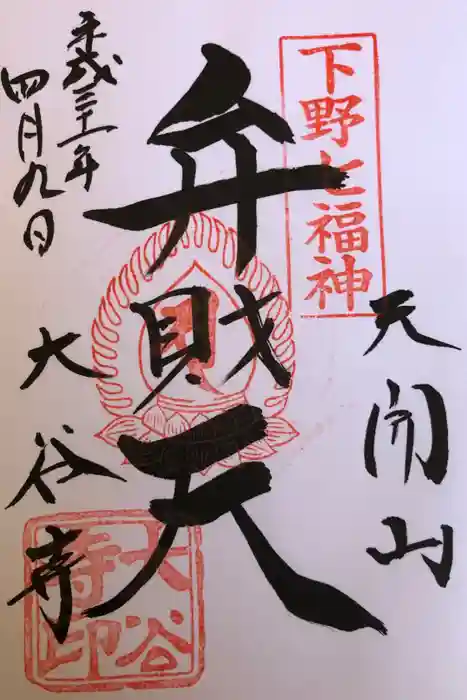 下野七福神
天開山
弁財天
平成三十一年
四月九日
大谷寺
大谷
寺印